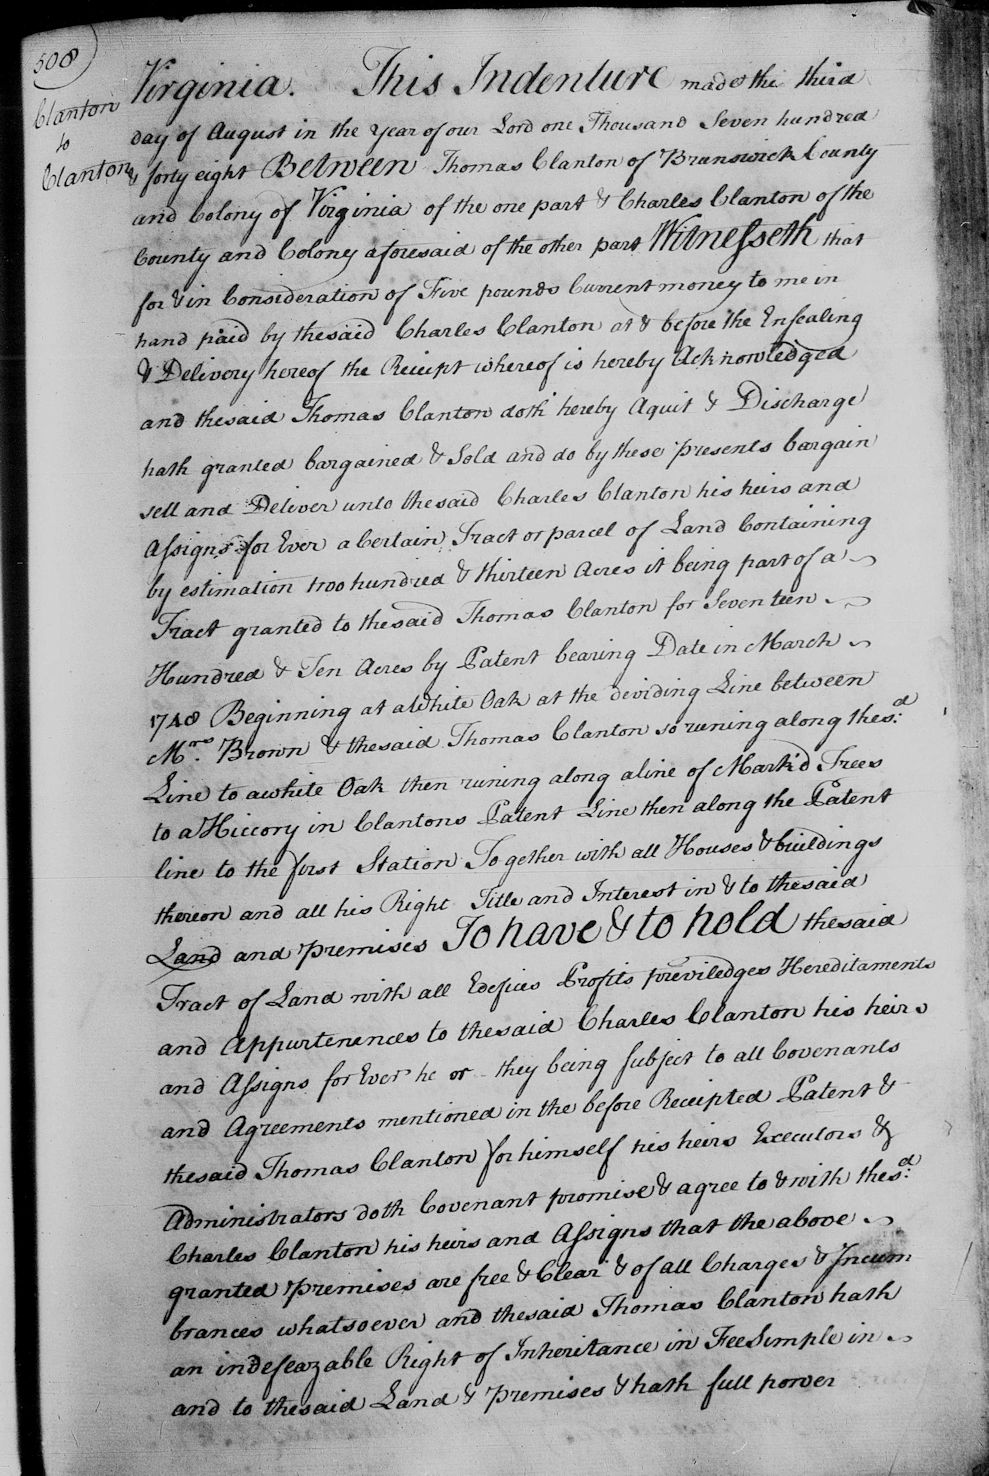 508
Clanton
to
Clanton
Virginia. This Indenture made the third
day of August in the year of our Lord one Thousand Seven hundred
& forty eight Between Thomas Clanton of Brunswick County
and Colony of Virginia of the one part & Charles Clanton of the
County and Colony aforesaid of the other part Witnesseth that
for & in Consideration of Five pounds Current money to me in
hand paid by the said Charles Clanton at & before the Ensealing
& Delivery hereof the Receipt whereof is hereby Acknowledged
and the said Thomas Clanton doth hereby Aquit & Discharge
hath granted bargained & Sold and do by these presents bargain
sell and Deliver unto the said Charles Clanton his heirs and
Assigns for Ever a Certain Tract or parcel of Land Containing
by estimation two hundred & thirteen Acres it being part of a
Tract granted to the said Thomas Clanton for Seventeen
Hundred & Ten Acres by Patent bearing Date in March
1748 Beginning at a White Oak at the deviding Line between
Mrs. Brown & the said Thomas Clanton so runing along the sd.
Line to a white Oak then runing along a line of Mark'd Trees
to a Hiccory in Clantons Patent Line then along the Patent
line to the first Station Together with all Houses & buildings
thereon and all his Right Title and Interest in & to the said
Land and premises To have & to hold the said
Tract of Land with all Edefices Profits previledges Hereditaments
and Appurtenences to the said Charles Clanton his heirs
and Assigns for Ever he or they being subject to all Covenants
and Agreements mentioned in the before Receipted Patent &
the said Thomas Clanton for himself his heirs Executors &
Administrators doth Covenant promise & agree to & with the sd.
Charles Clanton his heirs and Assigns that the above
granted premises are free & Clear & of all Charges & Incum
brances whatsoever and the said Thomas Clanton hath
an indefeazable Right of Inheritance in Fee Simple in
and to the said Land & premises & hath full power